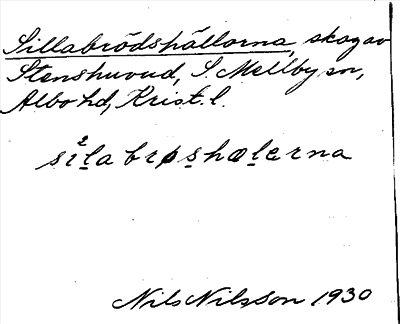 Sillabrödshällorna, skog av
Stenshuvud, S. Mellby sn,
Albo hd, Krist. l.
sı̊²l̲a brøs̲hæl̲e̲rna
Nils Nilsson 1930